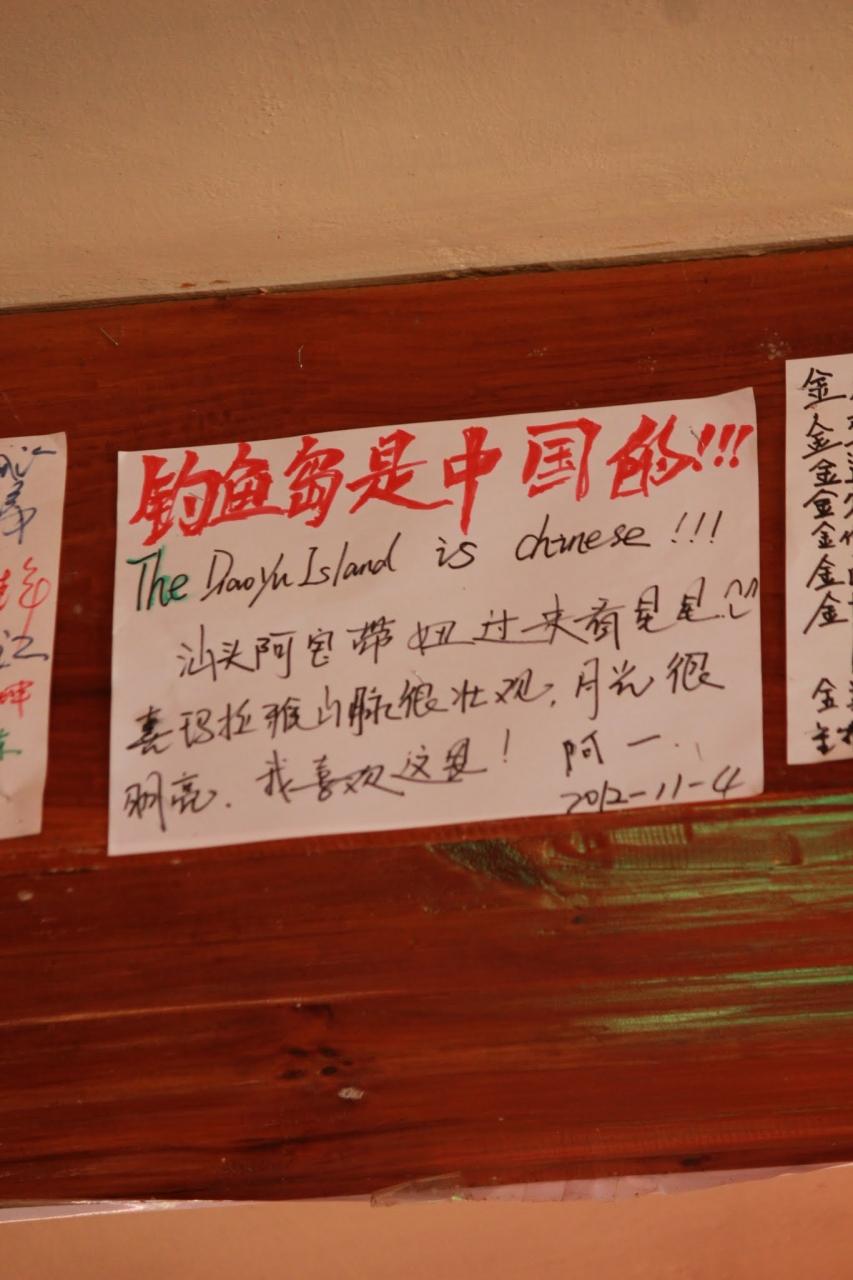 钓鱼岛是中国的!!!
The Diaoyu Island is chinese !!!
汕头阿宝带妞过来看星星
喜玛拉雅山脉很壮观，月光很
明亮．我喜欢这里！
阿一
2012-11-4
金
金
金
金
金
金
金
金